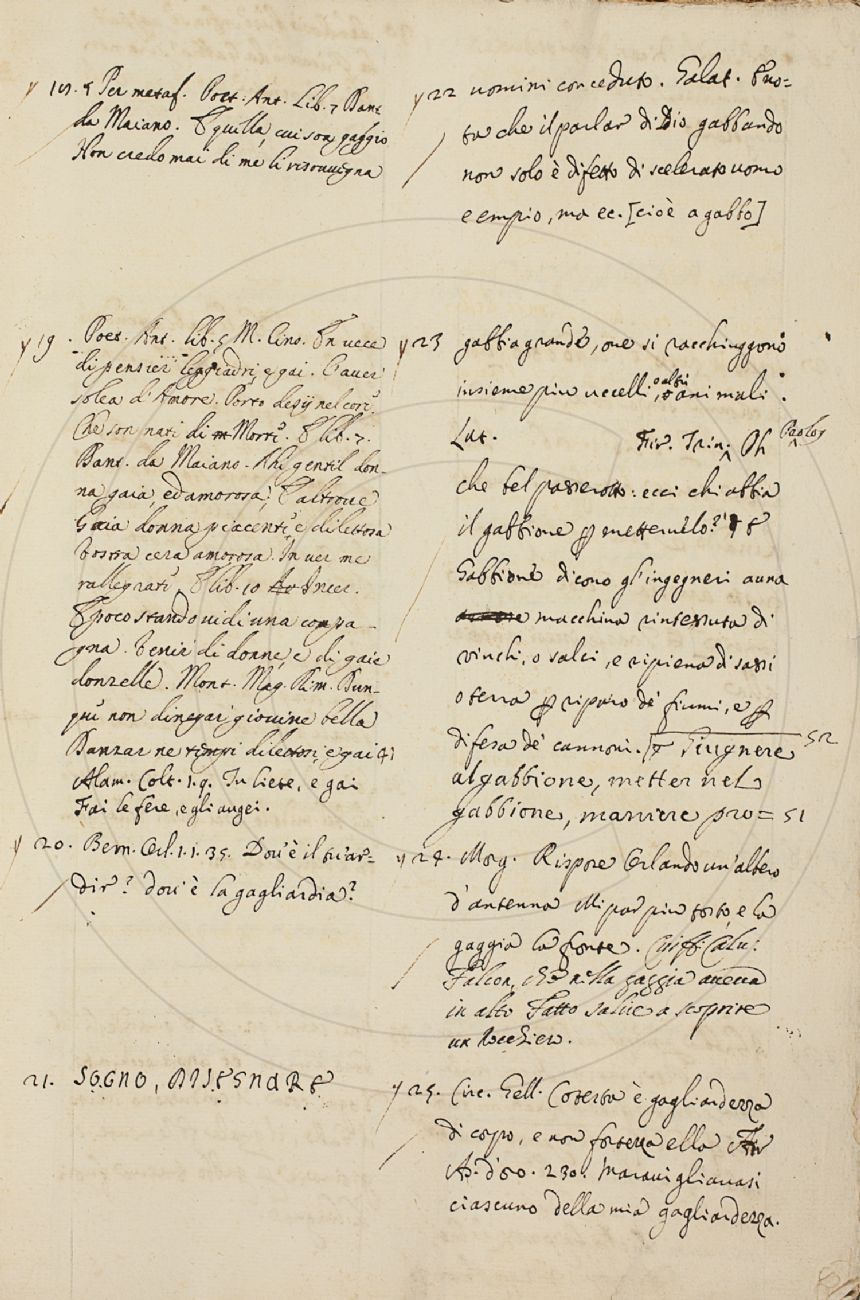 γ 18. Per metaf. Poet. Ant. Lib. 7 Dant
da Maiano. E quella, cui son gaggio
Non credo mai di me li risouvegna
γ 19. Poet. Ant. lib. 5 M. Cino. In vece
di pensier leggiadri, e gai. C'aver
solea d'Amore. Porto desij nel cor:
Che son nati di Morti. E lib. 7.
Dant. da Maiano. Ahi gentil don-
na gaia, ed amorosa; E altrove
Gaia donna piacente, e dilettosa
Vostra cera amorosa. In ver me
rallegrati, E lib. 10 Incer.
E poco stando vidi una compa-
gna. Venir di donne, e di gaie
donzelle. Mont. Mag. Rim. Dun-
que non dinegar giovine bella
Danzar ne tempi dilettosi, e gai
Alam. Colt. 1. 9. Tu liete, e gai
Fai le fere, e gli augei.
γ 20. Bern. Orl. 1. 1. 35. Dov'è il tu'ar-
dir? dov'è la gagliardia?
21. SOGNO, DISTENDRE
γ 22 uomini conceduto. Galat.
che il parlar di Dio gabbando
non solo è difetto di scelerato uomo
e empio, ma ec. [cioè a gabbo]
γ 23 gabbia grande, ove si racchiuggono
insieme piu uccelli, o altri animali.
Lat. Fir. Trin. Oh Paolo
che bel passerotto: ecci chi abbia
il gabbione p metternelo? E
Gabbione dicono gl'ingegneri a una
macchina rintessuta di
vinchi, o salci, e ripiena di sassi
o terra p riparo de fiumi, e p
difesa de' cannoni. Giugnere 52
al gabbione, metter nel
gabbione, maniere pro= 51
γ 24. Morg. Rispose Orlando un'albero
d'antenna Mi par piu tosto, e la
gaggia la fonte. Ciriff. Calv:
Falcon, che nella gaggia aveva
in alto Fatto salire a scoprire
un Nocchiero.
γ 25. Circ. Gell. Cotesta è gagliardezza
di corpo, e non fortezza ella
As. d'oro. 230. Maravigliavasi
ciascuno della mia gagliardezza.